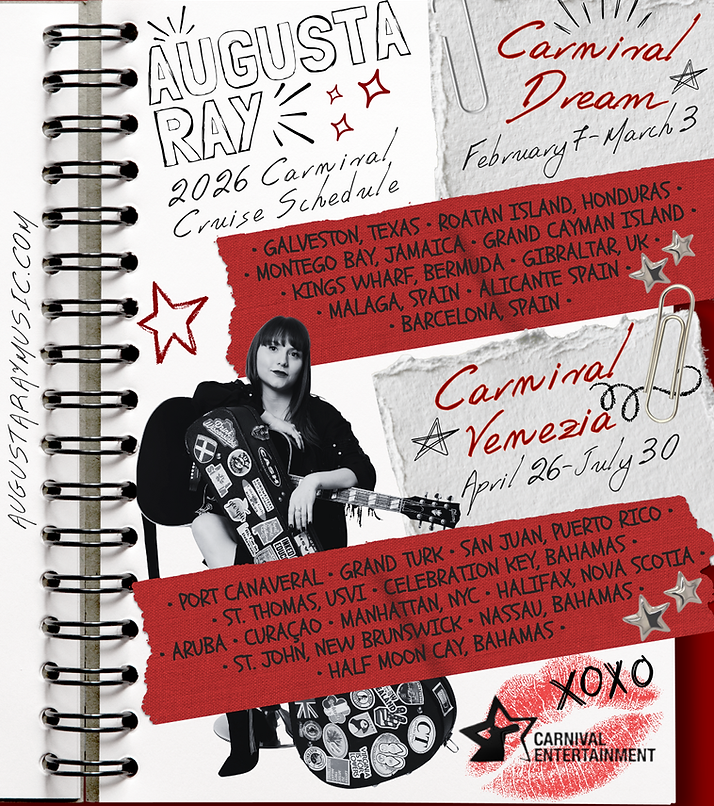 AUGUSTA
RAY
2026 Carnival
Cruise Schedule
Carnival
Dream
February 7-March 3
· GALVESTON, TEXAS · ROATAN ISLAND, HONDURAS ·
· MONTEGO BAY, JAMAICA · GRAND CAYMAN ISLAND ·
· KINGS WHARF, BERMUDA · GIBRALTAR, UK ·
· MALAGA, SPAIN · ALICANTE SPAIN ·
· BARCELONA, SPAIN ·
AUGUSTARAYMUSIC.COM
Carnival
Venezia
April 26-July 30
· PORT CANAVERAL · GRAND TURK · SAN JUAN, PUERTO RICO ·
· ST. THOMAS, USVI · CELEBRATION KEY, BAHAMAS ·
· ARUBA · CURAÇAO · MANHATTAN, NYC · HALIFAX, NOVA SCOTIA ·
· ST. JOHN, NEW BRUNSWICK · NASSAU, BAHAMAS ·
· HALF MOON CAY, BAHAMAS ·
XOXO
CARNIVAL
ENTERTAINMENT
CT